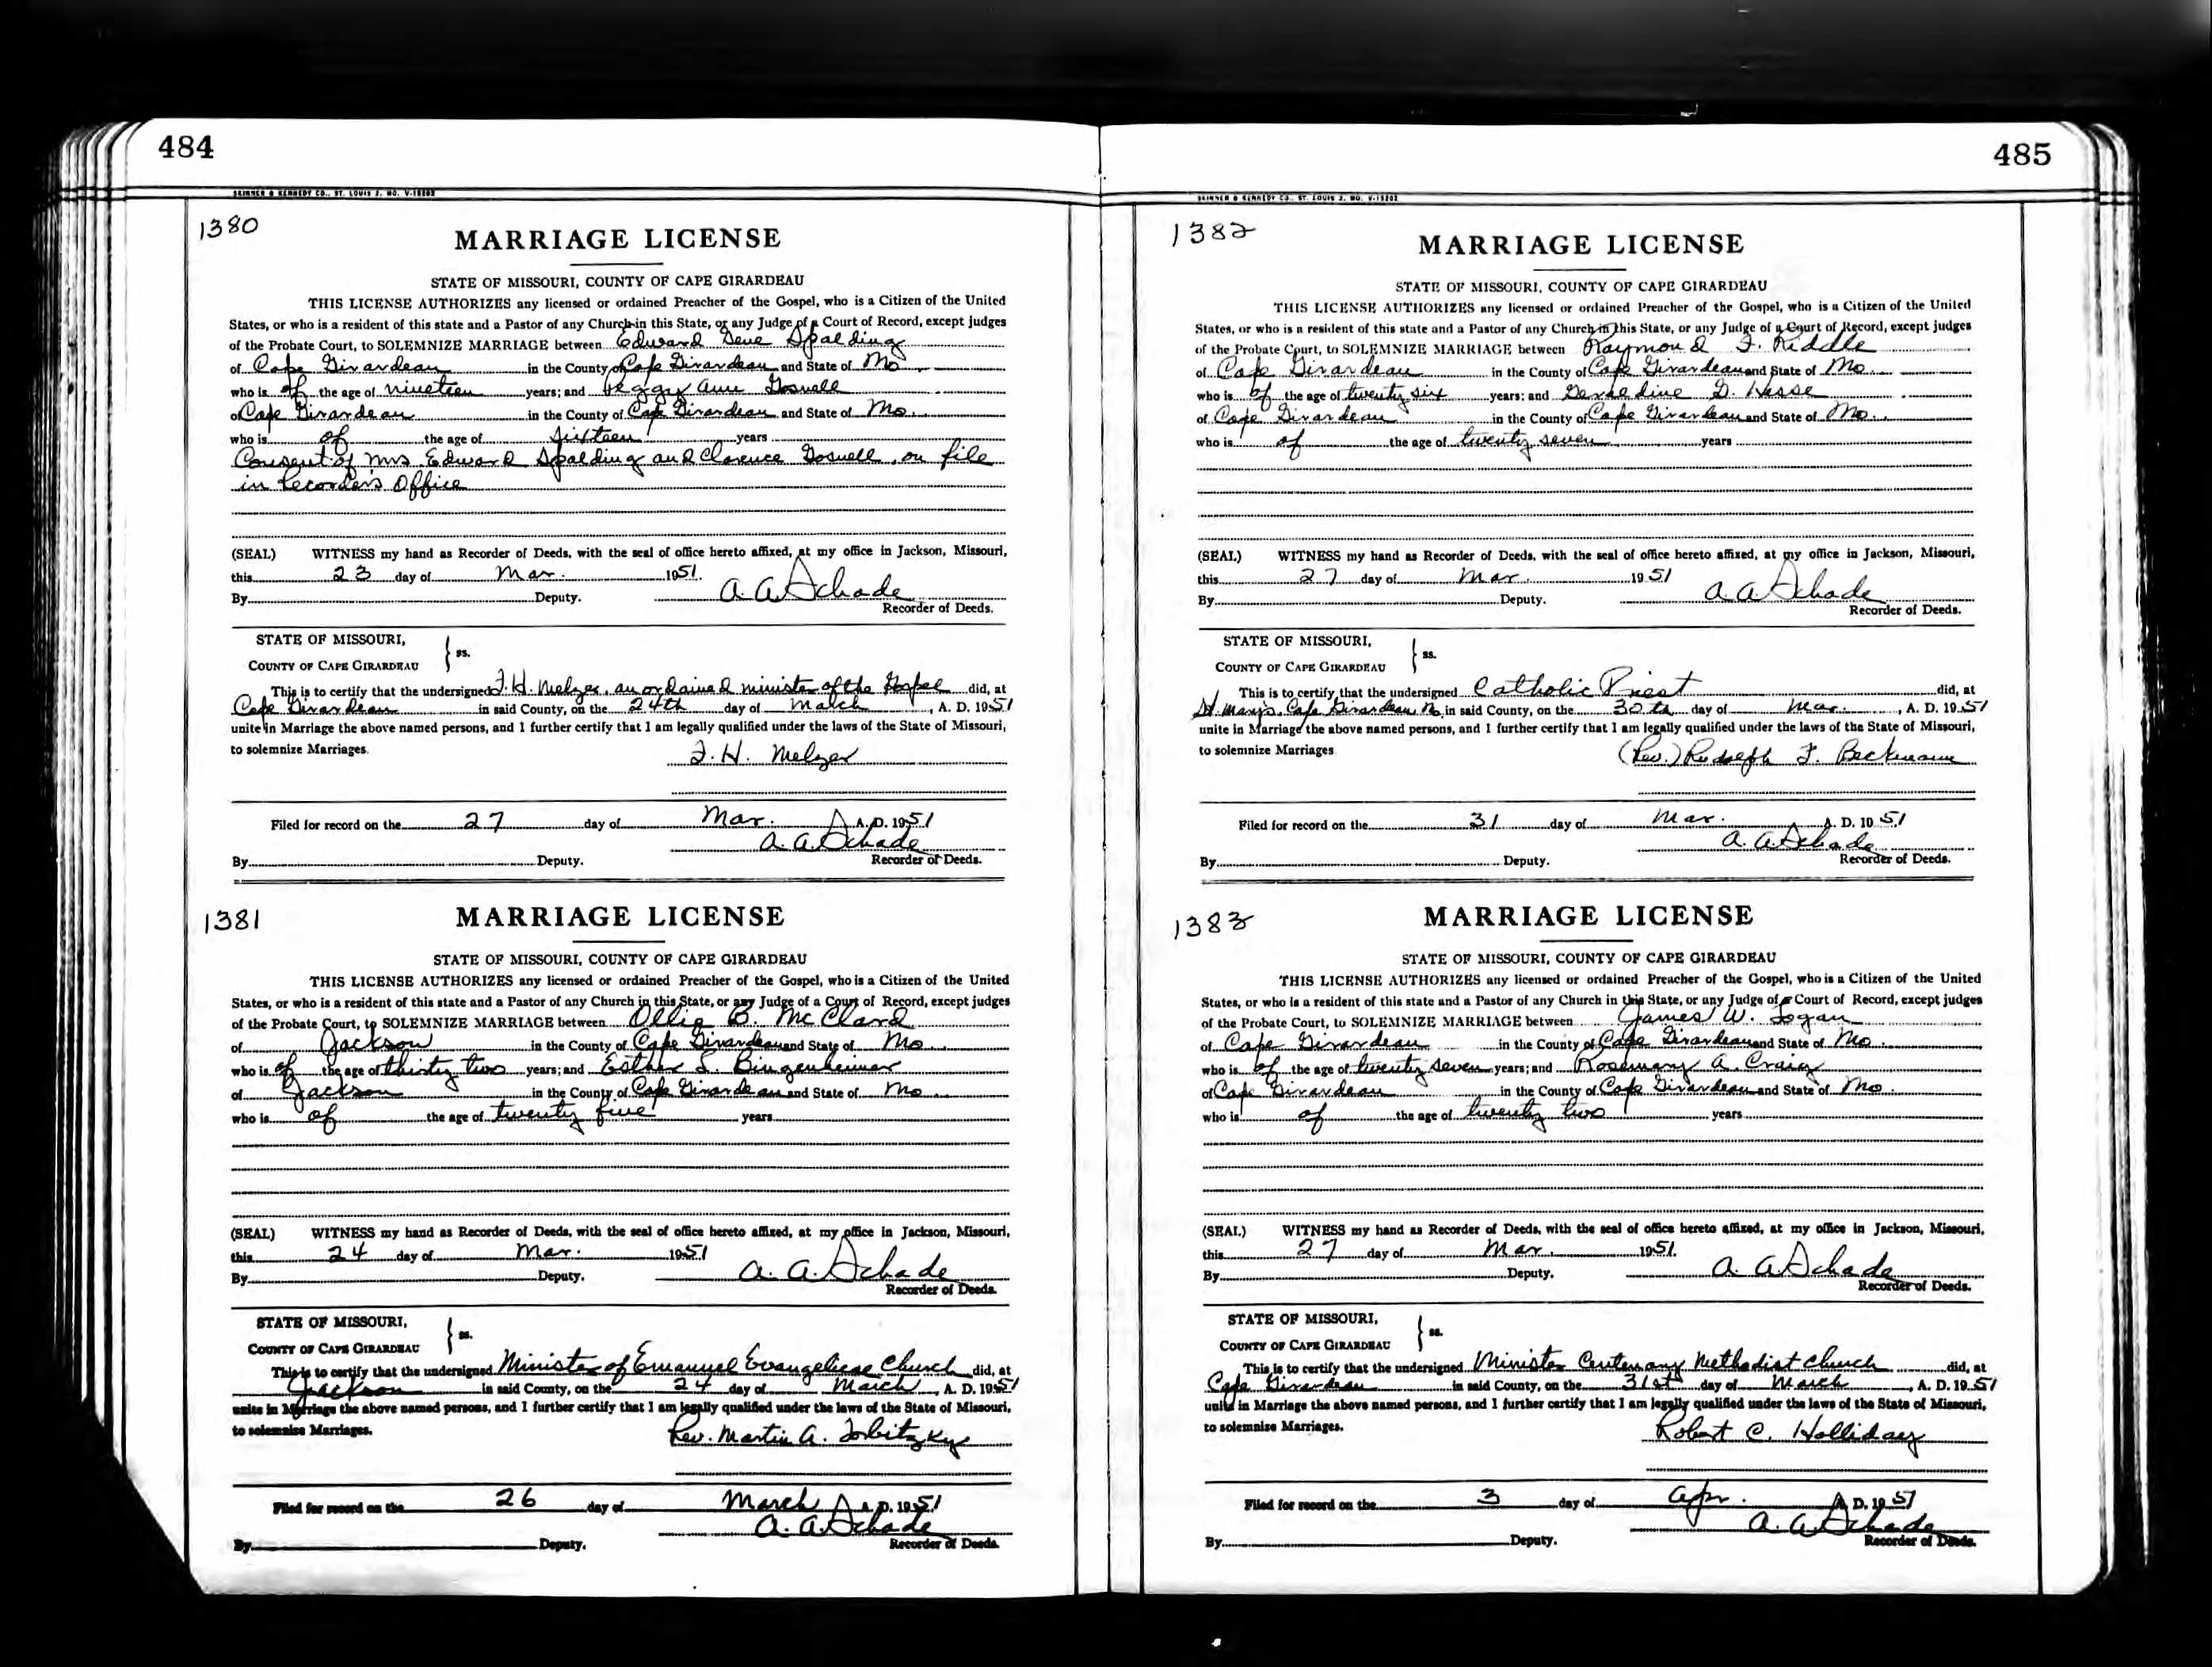 484
SKINNER & KENNEDY CO., ST. LOUIS 2, MO. V-15202
1380
MARRIAGE LICENSE
STATE OF MISSOURI, COUNTY OF CAPE GIRARDEAU
THIS LICENSE AUTHORIZES any licensed or ordained Preacher of the Gospel, who is a Citizen of the United
States, or who is a resident of this state and a Pastor of any Church in this State, or any Judge of a Court of Record, except judges
of the Probate Court, to SOLEMNIZE MARRIAGE between Edward Gene Spalding
of Cape Girardeau in the County of Cape Girardeau and State of Mo
who is of the age of nineteen years; and Peggy Ann Gosnell
of Cape Girardeau in the County of Cape Girardeau and State of Mo.
who is of the age of years
Consent of Mrs Edward Spalding and Clarence Gosnell, on file
in Recorders Office
(SEAL) WITNESS my hand as Recorder of Deeds, with the seal of office hereto affixed, at my office in Jackson, Missouri,
this 23 day of Mar. 1951.
By Deputy. A. A. Schade
Recorder of Deeds.
STATE OF MISSOURI,
COUNTY OF CAPE GIRARDEAU } ss.
This is to certify that the undersigned F. H. Melzer, an ordained minister of the Gospel did, at
Cape Girardeau in said County, on the 24th day of March, A. D. 1951
unite in Marriage the above named persons, and I further certify that I am legally qualified under the laws of the State of Missouri,
to solemnize Marriages.
F. H. Melzer
Filed for record on the 27 day of Mar. A. D. 1951
A. A. Schade
By Deputy. Recorder of Deeds.
1381
MARRIAGE LICENSE
STATE OF MISSOURI, COUNTY OF CAPE GIRARDEAU
THIS LICENSE AUTHORIZES any licensed or ordained Preacher of the Gospel, who is a Citizen of the United
States, or who is a resident of this state and a Pastor of any Church in this State, or any Judge of a Court of Record, except judges
of the Probate Court, to SOLEMNIZE MARRIAGE between Ollie B. McClard
of Jackson in the County of Cape Girardeau and State of Mo
who is of the age of thirty two years; and Esther L. Bingenheimer
of Jackson in the County of Cape Girardeau and State of Mo
who is of the age of twenty five years
(SEAL) WITNESS my hand as Recorder of Deeds, with the seal of office hereto affixed, at my office in Jackson, Missouri,
this 24 day of Mar. 1951
By Deputy. A. A. Schade
Recorder of Deeds.
STATE OF MISSOURI,
COUNTY OF CAPE GIRARDEAU } ss.
This is to certify that the undersigned Minister of Emanuel Evangelical Church did, at
Jackson in said County, on the 24 day of March, A. D. 1951
unite in Marriage the above named persons, and I further certify that I am legally qualified under the laws of the State of Missouri,
to solemnize Marriages.
Rev. Martin A.
Filed for record on the 26 day of March A. D. 1951
A. A. Schade
By Deputy. Recorder of Deeds.
485
SKINNER & KENNEDY CO., ST. LOUIS 2, MO. V-15202
1382
MARRIAGE LICENSE
STATE OF MISSOURI, COUNTY OF CAPE GIRARDEAU
THIS LICENSE AUTHORIZES any licensed or ordained Preacher of the Gospel, who is a Citizen of the United
States, or who is a resident of this state and a Pastor of any Church in this State, or any Judge of a Court of Record, except judges
of the Probate Court, to SOLEMNIZE MARRIAGE between Raymond F. Riddle
of Cape Girardeau in the County of Cape Girardeau and State of Mo.
who is of the age of twenty six years; and Geraldine D. Hesse
of Cape Girardeau in the County of Cape Girardeau and State of Mo.
who is of the age of twenty seven years
(SEAL) WITNESS my hand as Recorder of Deeds, with the seal of office hereto affixed, at my office in Jackson, Missouri,
this 27 day of Mar. 1951
By Deputy. A. A. Schade
Recorder of Deeds.
STATE OF MISSOURI,
COUNTY OF CAPE GIRARDEAU } ss.
This is to certify that the undersigned Catholic Priest did, at
St. Mary's, Cape Girardeau Mo in said County, on the 30th day of Mar., A. D. 1951
unite in Marriage the above named persons, and I further certify that I am legally qualified under the laws of the State of Missouri,
to solemnize Marriages
(Rev.) Rudolph F. Beckmann
Filed for record on the 31 day of Mar. A. D. 1951
A. A. Schade
By Deputy. Recorder of Deeds.
1383
MARRIAGE LICENSE
STATE OF MISSOURI, COUNTY OF CAPE GIRARDEAU
THIS LICENSE AUTHORIZES any licensed or ordained Preacher of the Gospel, who is a Citizen of the United
States, or who is a resident of this state and a Pastor of any Church in this State, or any Judge of a Court of Record, except judges
of the Probate Court, to SOLEMNIZE MARRIAGE between James W. Logan
of Cape Girardeau in the County of Cape Girardeau and State of Mo.
who is of the age of twenty seven years; and Rosemary A. Craig
of Cape Girardeau in the County of Cape Girardeau and State of Mo.
who is of the age of twenty two years
(SEAL) WITNESS my hand as Recorder of Deeds, with the seal of office hereto affixed, at my office in Jackson, Missouri,
this 27 day of Mar. 1951.
By Deputy. A. A. Schade
Recorder of Deeds.
STATE OF MISSOURI,
COUNTY OF CAPE GIRARDEAU } ss.
This is to certify that the undersigned Minister Centenary Methodist Church did, at
Cape Girardeau in said County, on the 31st day of March, A. D. 1951
unite in Marriage the above named persons, and I further certify that I am legally qualified under the laws of the State of Missouri,
to solemnize Marriages.
Robert C. Holliday
Filed for record on the 3 day of Apr. A. D. 1951
A. A. Schade
By Deputy. Recorder of Deeds.